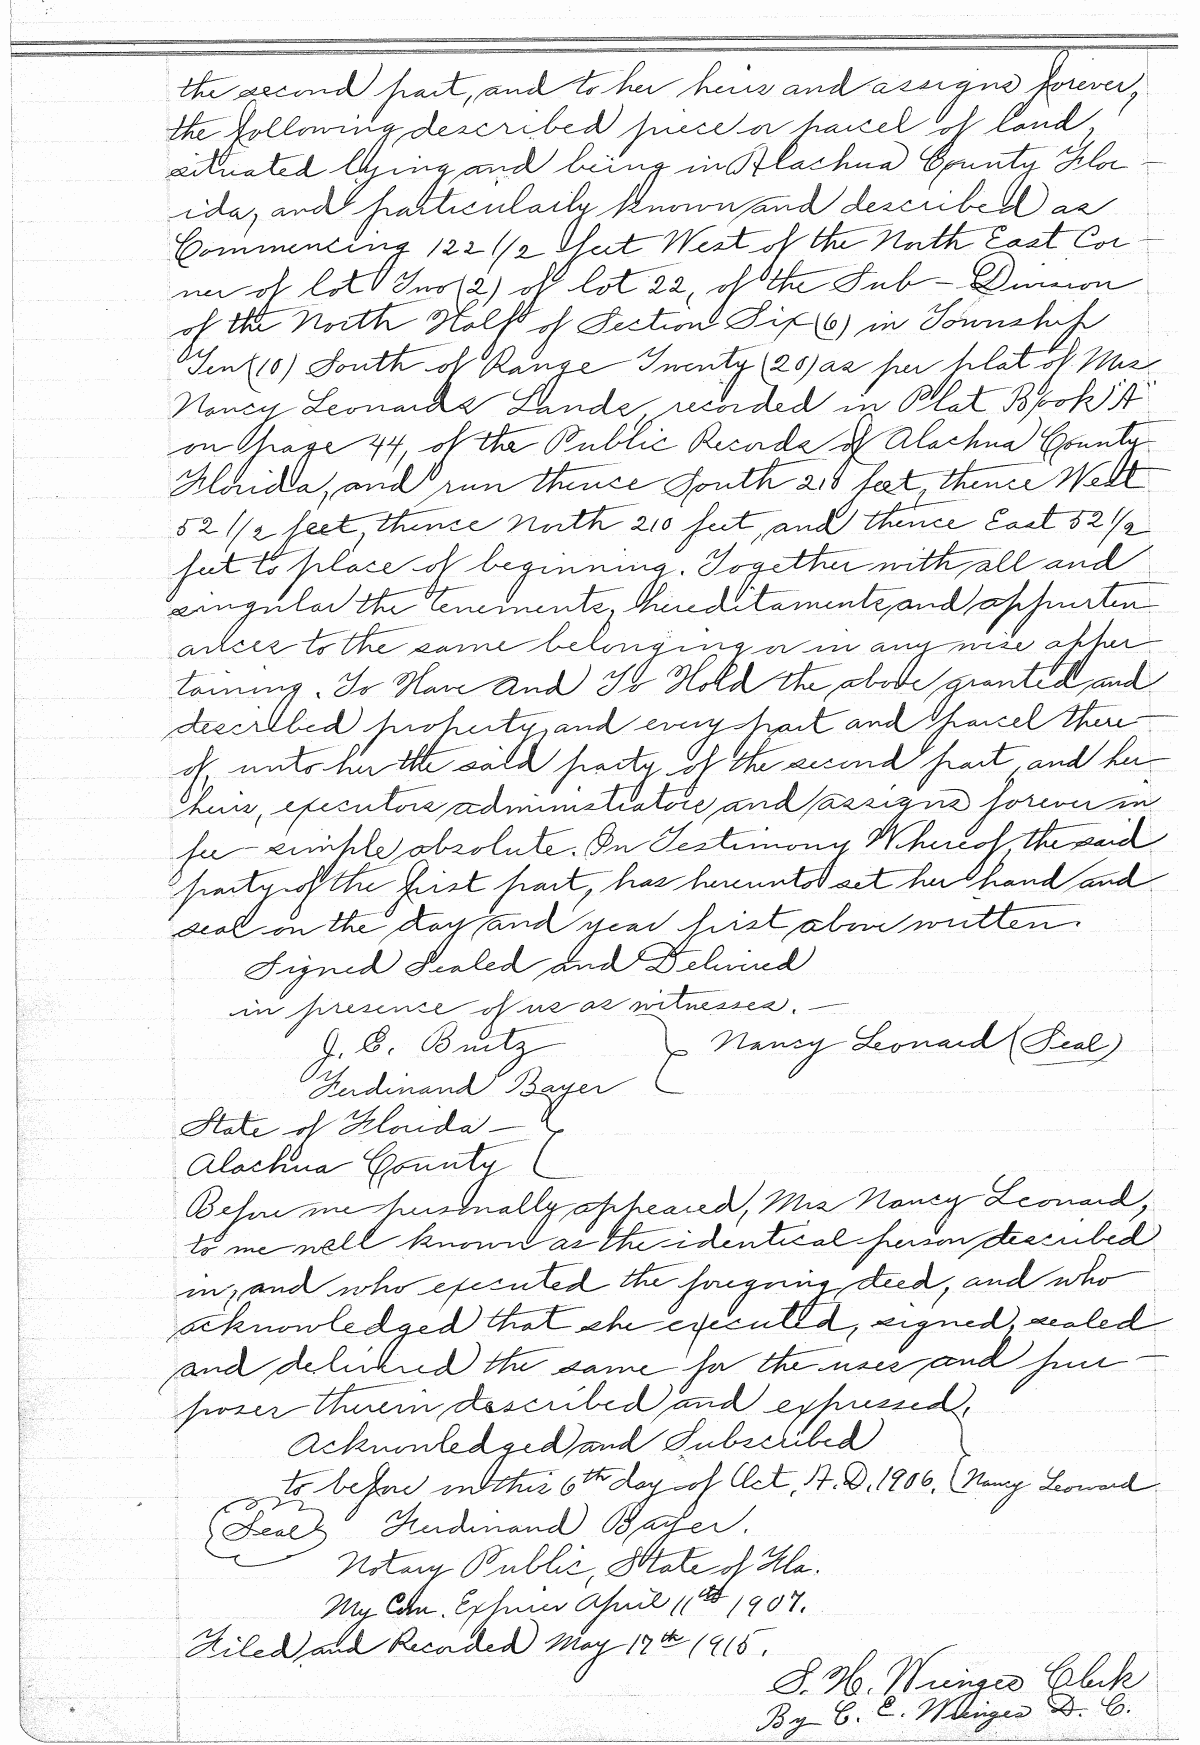 the second part, and to her heirs and assigns forever,
the following described piece or parcel of land,
situated lying and being in Alachua County Flor-
ida, and particularly known and described as
Commencing 122 1/2 feet West of the North East Cor-
ner of lot Two (2) of lot 22, of the Sub-Division
of the North Half of Section Six (6) in Township
Ten (10) South of Range Twenty (20) as per plat of Mrs
Nancy Leonards Lands, recorded in Plat Book "A"
on page 44, of the Public Records of Alachua County
Florida, and run thence South 210 feet, thence West
52 1/2 feet, thence North 210 feet, and thence East 52 1/2
feet to place of beginning. Together with all and
singular the tenements, hereditaments and appurten
ances to the same belonging or in any wise apper
taining. To Have And To Hold the above granted and
described property, and every part and parcel there-
of, unto her the said party of the second part, and her
heirs, executors administrators and assigns forever in
fee-simple absolute. In Testimony Whereof, the said
party of the first part, has hereunto set her hand and
seal on the day and year first above written.
Signed Sealed and Delivered
in presence of us as witnesses. -
J. E. Nancy Leonard (Seal)
Ferdinand Bayer
State of Florida -
Alachua County
Before me personally appeared, Mrs Nancy Leonard,
to me well known as the identical person described
in, and who executed the foregoing deed, and who
acknowledged that she executed, signed, sealed
and delivered the same for the uses and pur-
poses therein described and expressed.
Acknowledged and Subscribed
to before in this 6th day of Oct, A. D. 1906. Nancy Leonard
(Seal) Ferdinand Bayer.
Notary Public, State of Fla.
My Com. Expires April 11th 1907.
Filed and Recorded May 17th 1915.
S. H. Wienges Clerk
By C. E. Wienges D. C.